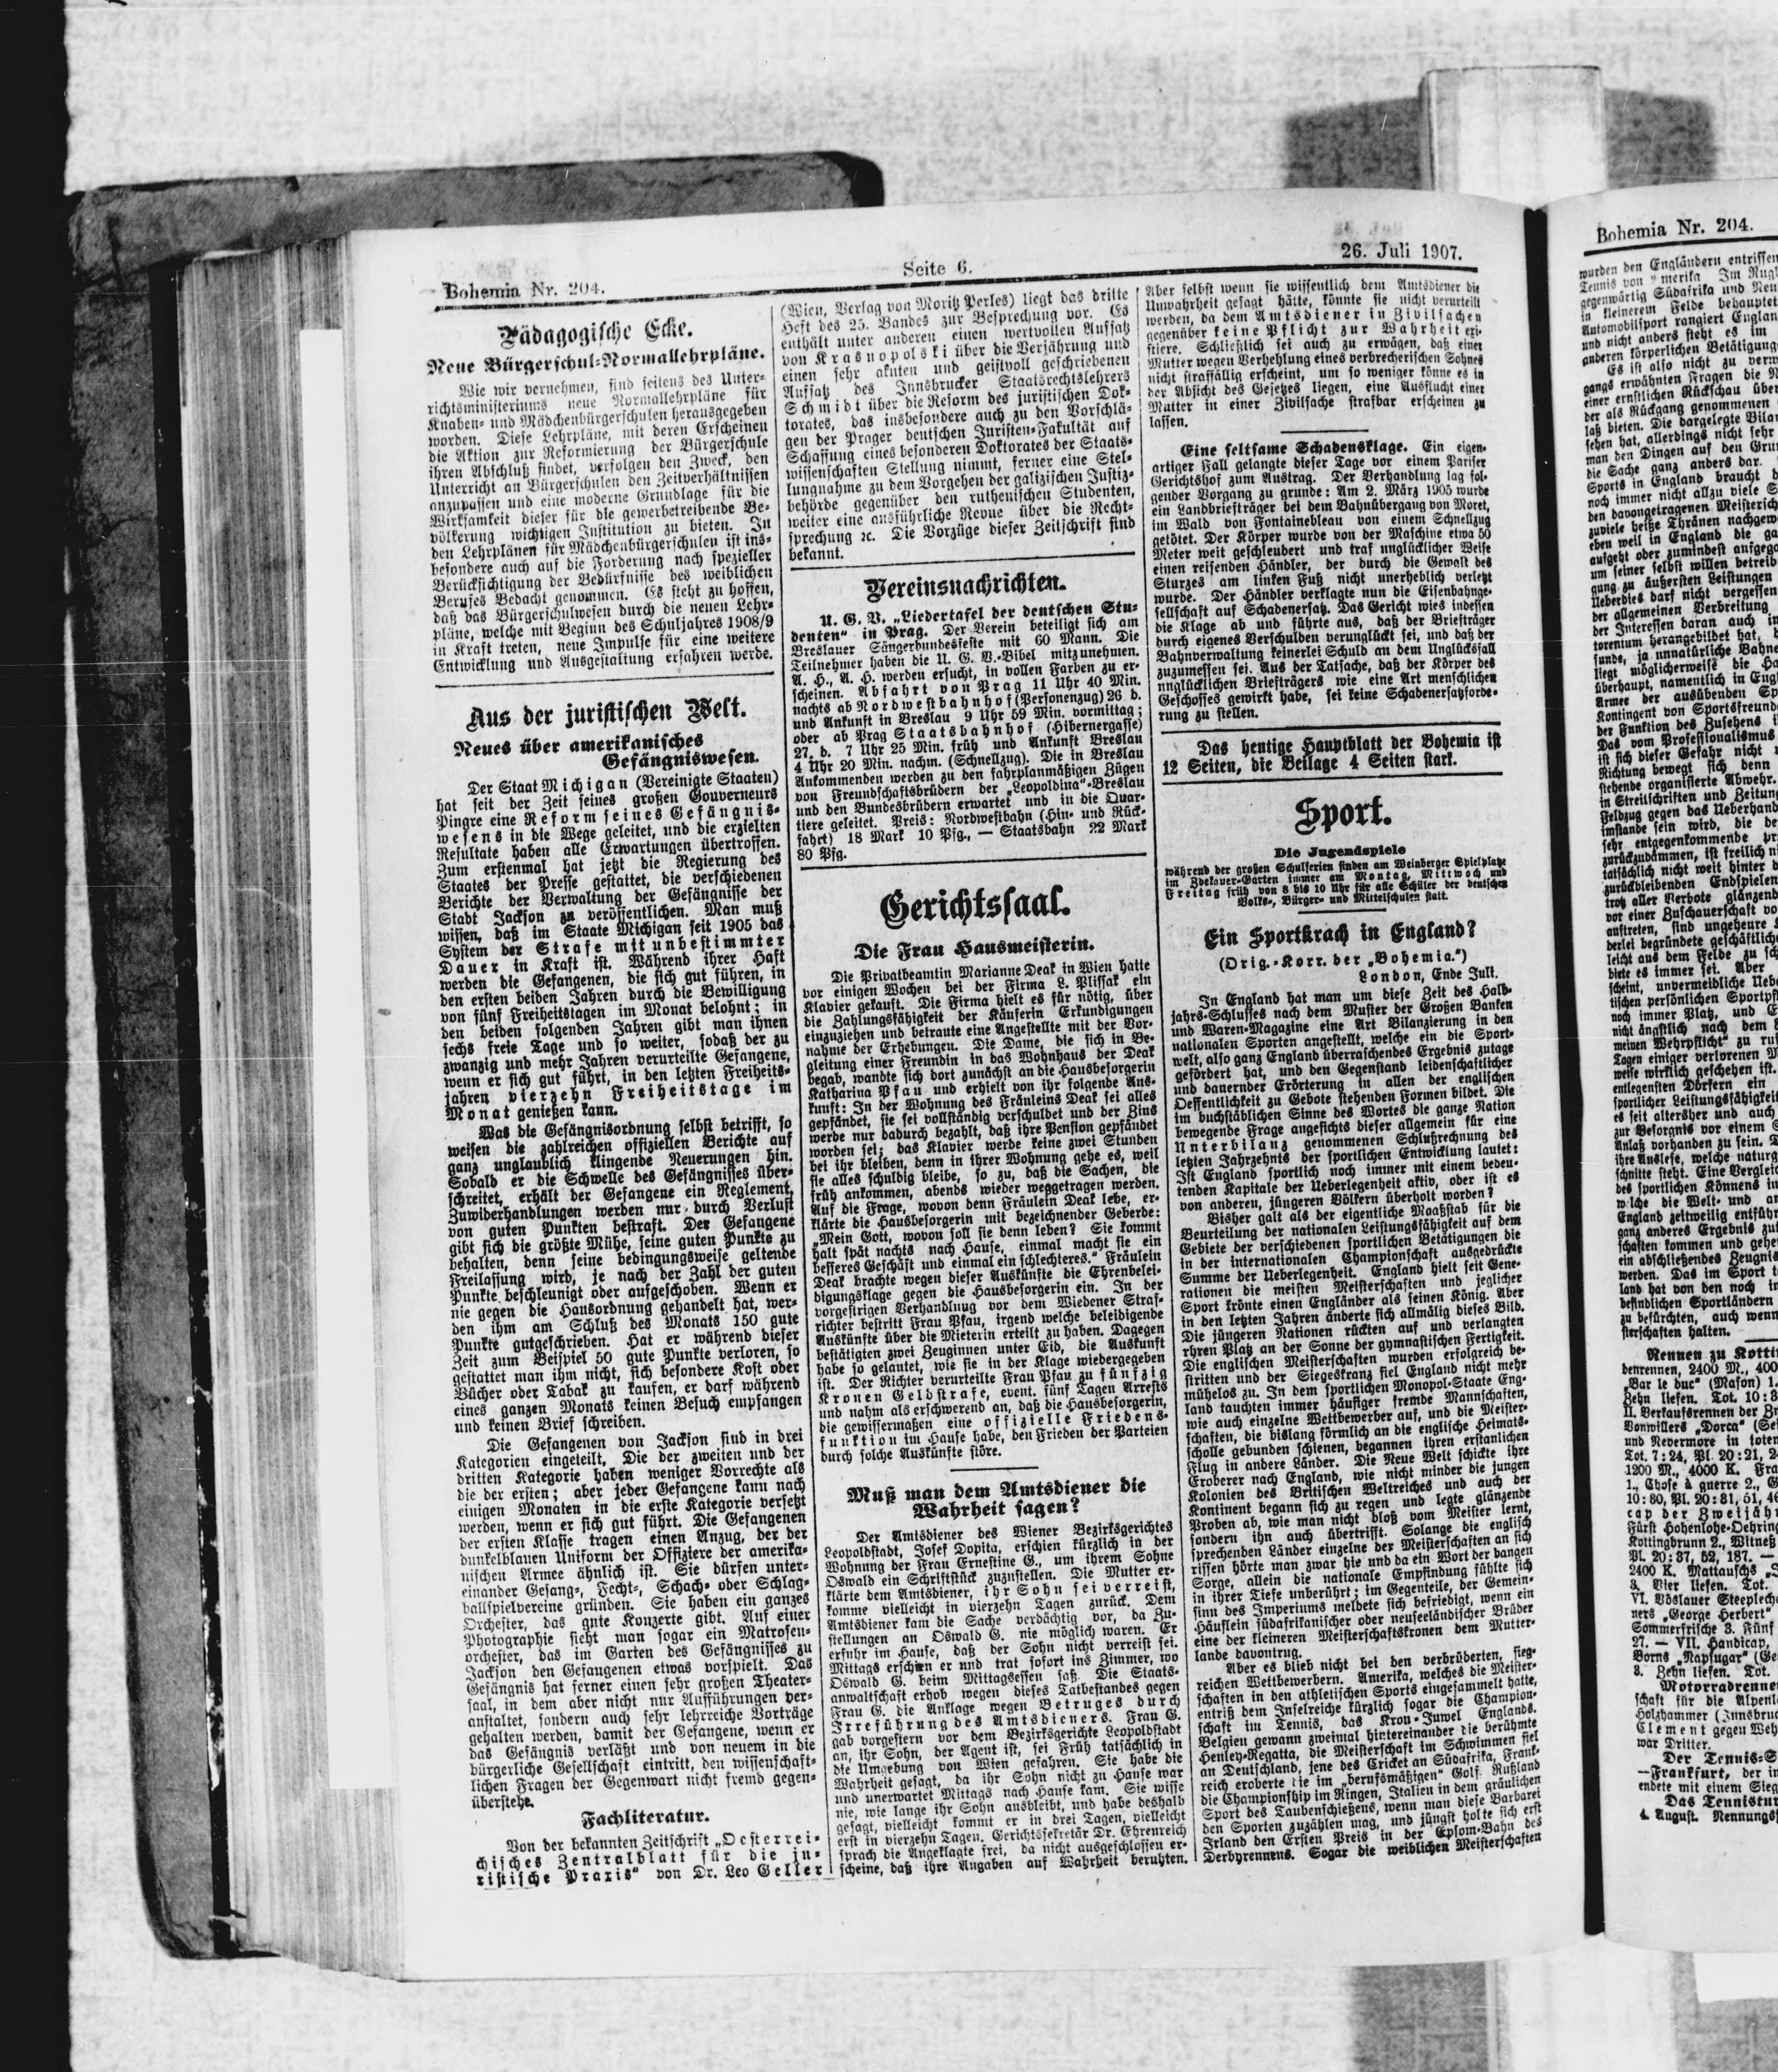 Bohemia Nr. 204.
Seite 6.
26. Juli 1907.
Pädagogische Ecke.
Neue Bürgerschul-Normallehrpläne.
Wie wir vernehmen, sind seitens des Unter-
richtsministeriums neue Normallehrpläne für
Knaben- und Mädchenbürgerschulen herausgegeben
worden. Diese Lehrpläne, mit deren Erscheinen
die Aktion zur Reformierung der Bürgerschule
ihren Abschluß findet, verfolgen den Zweck, den
Unterricht an Bürgerschulen den Zeitverhältnissen
anzupassen und eine moderne Grundlage für die
Wirksamkeit dieser für die gewerbetreibende Be-
völkerung wichtigen Institution zu bieten. In
den Lehrplänen für Mädchenbürgerschulen ist ins-
besondere auch auf die Forderung nach spezieller
Berücksichtigung der Bedürfnisse des weiblichen
Berufes Bedacht genommen. Es steht zu hoffen,
daß das Bürgerschulwesen durch die neuen Lehr-
pläne, welche mit Beginn des Schuljahres 1908/9
in Kraft treten, neue Impulse für eine weitere
Entwicklung und Ausgestaltung erfahren werde.
Aus der juristischen Welt.
Neues über amerikanisches
Gefängniswesen.
Der Staat Michigan (Vereinigte Staaten)
hat seit der Zeit seines großen Gouverneurs
Pingre eine Reform seines Gefängnis-
wesens in die Wege geleitet, und die erzielten
Resultate haben alle Erwartungen übertroffen.
Zum erstenmal hat jetzt die Regierung des
Staates der Presse gestattet, die verschiedenen
Berichte der Verwaltung der Gefängnisse der
Stadt Jackson zu veröffentlichen. Man muß
wissen, daß im Staate Michigan seit 1905 das
System der Strafe mit unbestimmter
Dauer in Kraft ist. Während ihrer Haft
werden die Gefangenen, die sich gut führen, in
den ersten beiden Jahren durch die Bewilligung
von fünf Freiheitstagen im Monat belohnt; in
den beiden folgenden Jahren gibt man ihnen
sechs freie Tage und so weiter, sodaß der zu
zwanzig und mehr Jahren verurteilte Gefangene,
wenn er sich gut führt, in den letzten Freiheits-
jahren vierzehn Freiheitstage im
Monat genießen kann.
Was die Gefängnisordnung selbst betrifft, so
weisen die zahlreichen offiziellen Berichte auf
ganz unglaublich klingende Neuerungen hin.
Sobald er die Schwelle des Gefängnisses über-
schreitet, erhält der Gefangene ein Reglement,
Zuwiderhandlungen werden nur durch Verlust
von guten Punkten bestraft. Der Gefangene
gibt sich die größte Mühe, seine guten Punkte zu
behalten, denn seine bedingungsweise geltende
Freilassung wird, je nach der Zahl der guten
Punkte beschleunigt oder aufgeschoben. Wenn er
nie gegen die Hausordnung gehandelt hat, wer-
den ihm am Schluß des Monats 150 gute
Punkte gutgeschrieben. Hat er während dieser
Zeit zum Beispiel 50 gute Punkte verloren, so
gestattet man ihm nicht, sich besondere Kost oder
Bücher oder Tabak zu kaufen, er darf während
eines ganzen Monats keinen Besuch empfangen
und keinen Brief schreiben.
Die Gefangenen von Jackson sind in drei
Kategorien eingeteilt. Die der zweiten und der
dritten Kategorie haben weniger Vorrechte als
die der ersten; aber jeder Gefangene kann nach
einigen Monaten in die erste Kategorie versetzt
werden, wenn er sich gut führt. Die Gefangenen
der ersten Klasse tragen einen Anzug, der der
dunkelblauen Uniform der Offiziere der amerika-
nischen Armee ähnlich ist. Sie dürfen unter-
einander Gesang-, Fecht-, Schach- oder Schlag-
ballspielvereine gründen. Sie haben ein ganzes
Orchester, das gute Konzerte gibt. Auf einer
Photographie sieht man sogar ein Matrosen-
orchester, das im Garten des Gefängnisses zu
Jackson den Gefangenen etwas vorspielt. Das
Gefängnis hat ferner einen sehr großen Theater-
saal, in dem aber nicht nur Aufführungen ver-
anstaltet, sondern auch sehr lehrreiche Vorträge
gehalten werden, damit der Gefangene, wenn er
das Gefängnis verläßt und von neuem in die
bürgerliche Gesellschaft eintritt, den wissenschaft-
lichen Fragen der Gegenwart nicht fremd gegen-
überstehe.
Fachliteratur.
Von der bekannten Zeitschrift „Oesterrei-
chisches Zentralblatt für die ju-
ristische Praxis“ von Dr. Leo Geller
(Wien, Verlag von Moritz Perles) liegt das dritte
Heft des 25. Bandes zur Besprechung vor. Es
enthält unter anderen einen wertvollen Aufsatz
von Krasnopolski über die Verjährung und
einen sehr akuten und geistvoll geschriebenen
Aufsatz des Innsbrucker Staatsrechtslehrers
Schmidt über die Reform des juristischen Dok-
torates, das insbesondere auch zu den Vorschlä-
gen der Prager deutschen Juristen-Fakultät auf
Schaffung eines besonderen Doktorates der Staats-
wissenschaften Stellung nimmt, ferner eine Stel-
lungnahme zu dem Vorgehen der galizischen Justiz-
behörde gegenüber den ruthenischen Studenten,
weiter eine ausführliche Revue über die Recht-
sprechung ꝛc. Die Vorzüge dieser Zeitschrift sind
bekannt.
Vereinsnachrichten.
U. G. V. „Liedertafel der deutschen Stu-
denten“ in Prag. Der Verein beteiligt sich am
Breslauer Sängerbundesfeste mit 60 Mann. Die
Teilnehmer haben die U. G. V.-Bibel mitzunehmen.
A. H., A. H. werden ersucht, in vollen Farben zu er-
scheinen. Abfahrt von Prag 11 Uhr 40 Min.
nachts ab Nordwestbahnhof (Personenzug) 26. d.
und Ankunft in Breslau 9 Uhr 59 Min. vormittag;
oder ab Prag Staatsbahnhof (Hibernergasse)
27. d. 7 Uhr 25 Min. früh und Ankunft Breslau
4 Uhr 20 Min. nachm. (Schnellzug). Die in Breslau
Ankommenden werden zu den fahrplanmäßigen Zügen
von Freundschaftsbrüdern der „Leopoldina“-Breslau
und den Bundesbrüdern erwartet und in die Quar-
tiere geleitet. Preis: Nordwestbahn (Hin- und Rück-
fahrt) 18 Mark 10 Pfg., — Staatsbahn 22 Mark
80 Pfg.
Gerichtssaal.
Die Frau Hausmeisterin.
Die Privatbeamtin Marianne Deak in Wien hatte
vor einigen Wochen bei der Firma L. Plissak ein
Klavier gekauft. Die Firma hielt es für nötig, über
die Zahlungsfähigkeit der Käuferin Erkundigungen
einzuziehen und betraute eine Angestellte mit der Vor-
nahme der Erhebungen. Die Dame, die sich in Be-
gleitung einer Freundin in das Wohnhaus der Deak
begab, wandte sich dort zunächst an die Hausbesorgerin
Katharina Pfau und erhielt von ihr folgende Aus-
kunft: In der Wohnung des Fräuleins Deak sei alles
gepfändet, sie sei vollständig verschuldet und der Zins
werde nur dadurch bezahlt, daß ihre Pension gepfändet
worden sei; das Klavier werde keine zwei Stunden
bei ihr bleiben, denn in ihrer Wohnung gehe es, weil
sie alles schuldig bleibe, so zu, daß die Sachen, die
früh ankommen, abends wieder weggetragen werden.
Auf die Frage, wovon denn Fräulein Deak lebe, er-
klärte die Hausbesorgerin mit bezeichnender Geberde:
„Mein Gott, wovon soll sie denn leben? Sie kommt
halt spät nachts nach Hause, einmal macht sie ein
besseres Geschäft und einmal ein schlechteres.“ Fräulein
Deak brachte wegen dieser Auskünfte die Ehrenbelei-
digungsklage gegen die Hausbesorgerin ein. In der
vorgestrigen Verhandlung vor dem Wiedener Straf-
richter bestritt Frau Pfau, irgend welche beleidigende
Auskünfte über die Mieterin erteilt zu haben. Dagegen
bestätigten zwei Zeuginnen unter Eid, die Auskunft
habe so gelautet, wie sie in der Klage wiedergegeben
ist. Der Richter verurteilte Frau Pfau zu fünfzig
Kronen Geldstrafe, event. fünf Tagen Arrests
und nahm als erschwerend an, daß die Hausbesorgerin,
die gewissermaßen eine offizielle Friedens-
funktion im Hause habe, den Frieden der Parteien
durch solche Auskünfte störe.
Muß man dem Amtsdiener die
Wahrheit sagen?
Der Amtsdiener des Wiener Bezirksgerichtes
Leopoldstadt, Josef Dopita, erschien kürzlich in der
Wohnung der Frau Ernestine G., um ihrem Sohne
Oswald ein Schriftstück zuzustellen. Die Mutter er-
klärte dem Amtsdiener, ihr Sohn sei verreist,
komme vielleicht in vierzehn Tagen zurück. Dem
Amtsdiener kam die Sache verdächtig vor, da Zu-
stellungen an Oswald G. nie möglich waren. Er
erfuhr im Hause, daß der Sohn nicht verreist sei.
Mittags erschien er und trat sofort ins Zimmer, wo
Oswald G. beim Mittagsessen saß. Die Staats-
anwaltschaft erhob wegen dieses Tatbestandes gegen
Frau G. die Anklage wegen Betruges durch
Irreführung des Amtsdieners. Frau G.
gab vorgestern vor dem Bezirksgerichte Leopoldstadt
an, ihr Sohn, der Agent ist, sei Früh tatsächlich in
die Umgebung von Wien gefahren. Sie habe die
Wahrheit gesagt, da ihr Sohn nicht zu Hause war
und unerwartet Mittags nach Hause kam. Sie wisse
nie, wie lange ihr Sohn ausbleibt, und habe deshalb
gesagt, vielleicht kommt er in drei Tagen, vielleicht
erst in vierzehn Tagen. Gerichtssekretär Dr. Ehrenreich
sprach die Angeklagte frei, da nicht ausgeschlossen er-
scheine, daß ihre Angaben auf Wahrheit beruhten.
Aber selbst wenn sie wissentlich dem Amtsdiener die
Unwahrheit gesagt hätte, könnte sie nicht verurteilt
werden, da dem Amtsdiener in Zivilsachen
gegenüber keine Pflicht zur Wahrheit exi-
stiere. Schließlich sei auch zu erwägen, daß einer
Mutter wegen Verhehlung eines verbrecherischen Sohnes
nicht straffällig erscheint, um so weniger könne es in
der Absicht des Gesetzes liegen, eine Ausflucht einer
Mutter in einer Zivilsache strafbar erscheinen zu
lassen.
Eine seltsame Schadensklage. Ein eigen-
artiger Fall gelangte dieser Tage vor einem Pariser
Gerichtshof zum Austrag. Der Verhandlung lag fol-
gender Vorgang zu grunde: Am 2. März 1905 wurde
ein Landbriefträger bei dem Bahnübergang von Moret,
im Wald von Fontainebleau von einem Schnellzug
getötet. Der Körper wurde von der Maschine etwa 50
Meter weit geschleudert und traf unglücklicher Weise
einen reisenden Händler, der durch die Gewalt des
Sturzes am linken Fuß nicht unerheblich verletzt
wurde. Der Händler verklagte nun die Eisenbahnge-
sellschaft auf Schadenersatz. Das Gericht wies indessen
die Klage ab und führte aus, daß der Briefträger
durch eigenes Verschulden verunglückt sei, und daß der
Bahnverwaltung keinerlei Schuld an dem Unglücksfall
zuzumessen sei. Aus der Tatsache, daß der Körper des
unglücklichen Briefträgers wie eine Art menschlichen
Geschosses gewirkt habe, sei keine Schadenersatzforde-
rung zu stellen.
Das heutige Hauptblatt der Bohemia ist
12 Seiten, die Beilage 4 Seiten stark.
Sport.
Die Jugendspiele
während der großen Schulferien finden am Weinberger Spielplatze
im Zdekauer-Garten immer am Montag, Mittwoch und
Freitag früh von 8 bis 10 Uhr für alle Schüler der deutschen
Volks-, Bürger- und Mittelschulen statt.
Ein Sportkrach in England?
(Orig.-Korr. der „Bohemia.“)
London, Ende Juli.
In England hat man um diese Zeit des Halb-
jahrs-Schlusses nach dem Muster der Großen Banken
und Waren-Magazine eine Art Bilanzierung in den
nationalen Sporten angestellt, welche ein die Sport-
welt, also ganz England überraschendes Ergebnis zutage
gefördert hat, und den Gegenstand leidenschaftlicher
und dauernder Erörterung in allen der englischen
Oeffentlichkeit zu Gebote stehenden Formen bildet. Die
im buchstäblichen Sinne des Wortes die ganze Nation
bewegende Frage angesichts dieser allgemein für eine
Unterbilanz genommenen Schlußrechnung des
letzten Jahrzehnts der sportlichen Entwicklung lautet:
Ist England sportlich noch immer mit einem bedeu-
tenden Kapitale der Ueberlegenheit aktiv, oder ist es
von anderen, jüngeren Völkern überholt worden?
Bisher galt als der eigentliche Maaßstab für die
Beurteilung der nationalen Leistungsfähigkeit auf dem
Gebiete der verschiedenen sportlichen Betätigungen die
in der internationalen Championschaft ausgedrückte
Summe der Ueberlegenheit. England hielt seit Gene-
rationen die meisten Meisterschaften und jeglicher
Sport krönte einen Engländer als seinen König. Aber
in den letzten Jahren änderte sich allmälig dieses Bild.
Die jüngeren Nationen rückten auf und verlangten
ihren Platz an der Sonne der gymnastischen Fertigkeit.
Die englischen Meisterschaften wurden erfolgreich be-
stritten und der Siegeskranz fiel England nicht mehr
mühelos zu. In dem sportlichen Monopol-Staate Eng-
land tauchten immer häufiger fremde Mannschaften,
wie auch einzelne Wettbewerber auf, und die Meister-
schaften, die bislang förmlich an die englische Heimats-
scholle gebunden schienen, begannen ihren erstaunlichen
Flug in andere Länder. Die Neue Welt schickte ihre
Eroberer nach England, wie nicht minder die jungen
Kolonien des Britischen Weltreiches und auch der
Kontinent begann sich zu regen und legte glänzende
Proben ab, wie man nicht bloß vom Meister lernt,
sondern ihn auch übertrifft. Solange die englisch
sprechenden Länder einzelne der Meisterschaften an sich
rissen hörte man zwar hie und da ein Wort der bangen
Sorge, allein die nationale Empfindung fühlte sich
in ihrer Tiefe unberührt; im Gegenteile, der Gemein-
sinn des Imperiums meldete sich befriedigt, wenn ein
Häuflein südafrikanischer oder neuseeländischer Brüder
eine der kleineren Meisterschaftskronen dem Mutter-
lande davontrug.
Aber es blieb nicht bei den verbrüderten, sieg-
reichen Wettbewerbern. Amerika, welches die Meister-
schaften in den athletischen Sports eingesammelt hatte,
entriß dem Inselreiche kürzlich sogar die Champion-
schaft im Tennis, das Kron-Juwel Englands.
Belgien gewann zweimal hintereinander die berühmte
Henley-Regatta, die Meisterschaft im Schwimmen fiel
an Deutschland, jene des Cricket an Südafrika, Frank-
reich eroberte die im „berufsmäßigen“ Golf. Rußland
die Championship im Ringen, Italien in dem gräulichen
Sport des Taubenschießens, wenn man diese Barbarei
den Sporten zuzählen mag, und jüngst holte sich erst
Irland den Ersten Preis in der Epsom-Bahn des
Derbyrennens. Sogar die weiblichen Meisterschaften
Bohemia Nr. 204.
wurden den Engländern entrissen
gegenwärtig Südafrika und Neu
in kleinerem Felde behauptet
Automobilsport rangiert Englan
und nicht anders steht es im
anderen körperlichen Betätigung
Es ist also nicht zu verw
gangs erwähnten Fragen die N
einer ernstlichen Rückschau über
der als Rückgang genommenen
laß bieten. Die dargelegte Bilan
sehen hat, allerdings nicht sehr
man den Dingen auf den Grun
die Sache ganz anders dar.
Sports in England braucht d
noch immer nicht allzu viele S
den davongetragenen Meistersch
zuviele heiße Thränen nachgew
eben weil in England die ga
aufgeht oder zumindest aufgega
um seiner selbst willen betreib
gung zu äußersten Leistungen
Ueberdies darf nicht vergessen
der allgemeinen Verbreitung
der Interessen daran auch in
torentum herangebildet hat,
sunde, ja unnatürliche Bahne
liegt möglicherweise die Ha
überhaupt, namentlich in Engl
Armee der ausübenden Sp
Kontingent von Sportsfreunde
der Funktion des Zusehens
Das vom Professionalismus
ist sich dieser Gefahr nicht
Richtung bewegt sich denn
stehende organisierte Abwehr.
in Streitschriften und Zeitung
Feldzug gegen das Ueberhand
imstande sein wird, die be
sehr entgegenkommende pr
zurückzudämmen, ist freilich ni
tatsächlich nicht weit hinter d
zurückbleibenden Endspielen
trotz aller Verbote glänzend
vor einer Zuschauerschaft vo
auftreten, sind ungeheure
derlei begründete geschäftliche
leicht aus dem Felde zu sch
biete es immer sei. Aber
scheint, unvermeidliche Uebe
tischen persönlichen Sportpfl
noch immer Platz, und E
nicht ängstlich nach dem
meinen Wehrpflicht“ zu ruf
Tagen einiger verlorenen M
weise wirklich geschehen ist.
entlegensten Dörfern ein
sportlicher Leistungsfähigkeit
es seit altersher und auch
zur Besorgnis vor einem
Anlaß vorhanden zu sein.
ihre Auslese, welche naturg
schnitte steht. Eine Vergleic
des sportlichen Könnens in
welche die Welt- und an
England zeitweilig entführ
ganz anderes Ergebnis zut
schaften kommen und gehe
ein abschließendes Zeugnis
werden. Das im Sport
land hat von den noch in
befindlichen Sportländern
zu befürchten, auch wenn
sterschaften halten.
Rennen zu Kotti
denrennen, 2400 M., 400
„Bar le duc“ (Mason) 1.
Zehn liefen. Tot. 10:3
II. Verkaufsrennen der Zw
Vonwillers „Dorca“
und Nevermore in totem
Tot. 7:24, Pl. 20:21,
1200 M., 4000 K. Fra
1., Chose à guerre 2., G
10:80, Pl. 20:31, 51, 46
cap der Zweijähr
Fürst Hohenlohe-Oehring
Kottingbrunn 2., Witneß
Pl. 20:37, 52, 187. —
2400 K. Mattauschs
3. Vier liefen. Tot.
VI. Vöslauer Steeplech
ners „George Herbert“
Sommerfrische 3. Fünf
27. — VII. Handicap,
Borns „Napsugar“ (Ge
3. Zehn liefen. Tot.
Motorradrennen
schaft für die Alpenl
Holzhammer (Innsbruc
Clement gegen Weh
war Dritter.
Der Tennis-S
—Frankfurt, der in
endete mit einem Sieg
Das Tennistur
4. August. Nennungss